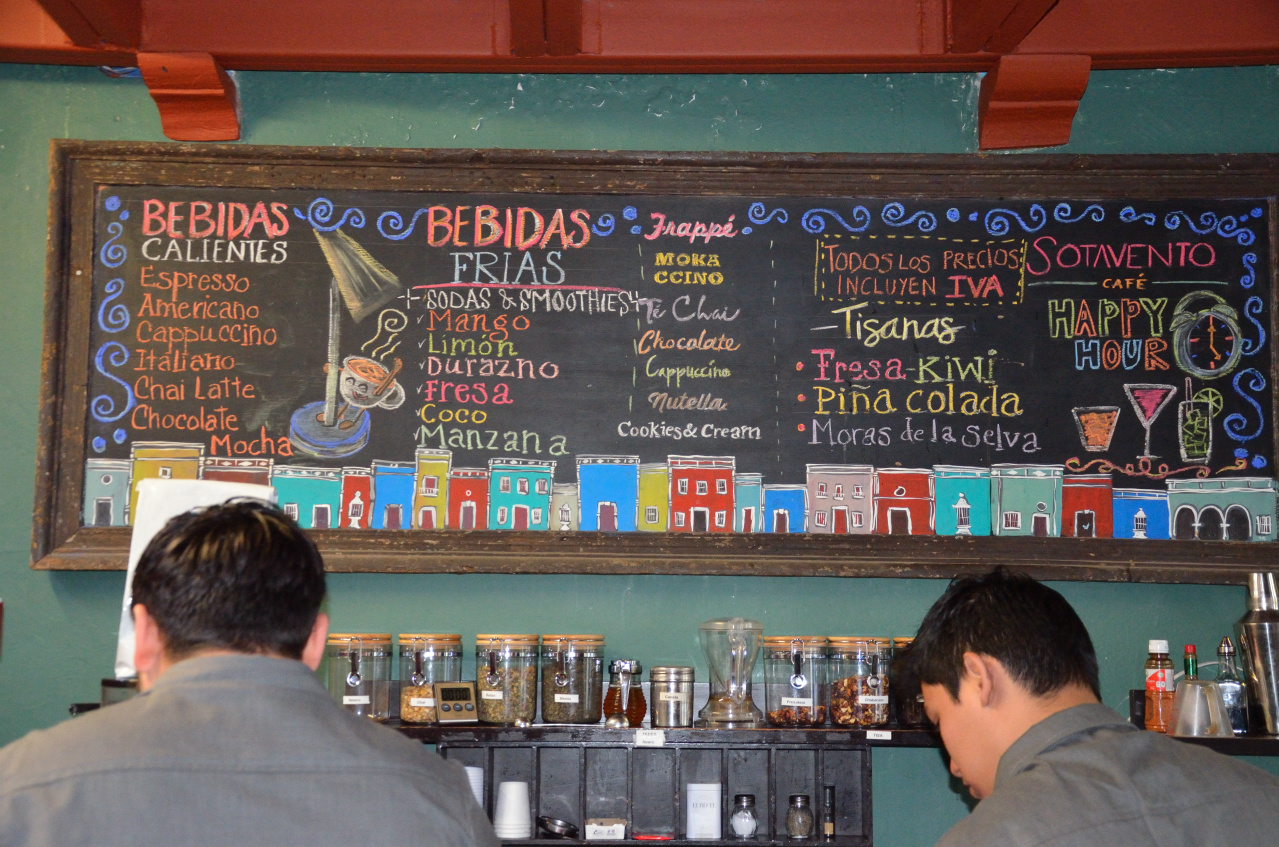 BEBIDAS
CALIENTES
Espresso
Americano
Cappuccino
Italiano
Chai Latte
Chocolate
Mocha
BEBIDAS
FRIAS
SODAS & SMOOTHIES
Mango
Limón
Durazno
Fresa
Coco
Manzana
Frappé
MOKA
CCINO
Té Chai
Chocolate
Cappuccino
Nutella
Cookies & Cream
TODOS LOS PRECIOS
INCLUYEN IVA
Tisanas
Fresa-Kiwi
Piña colada
Moras de la Selva
SOTAVENTO
CAFÉ
HAPPY
HOUR